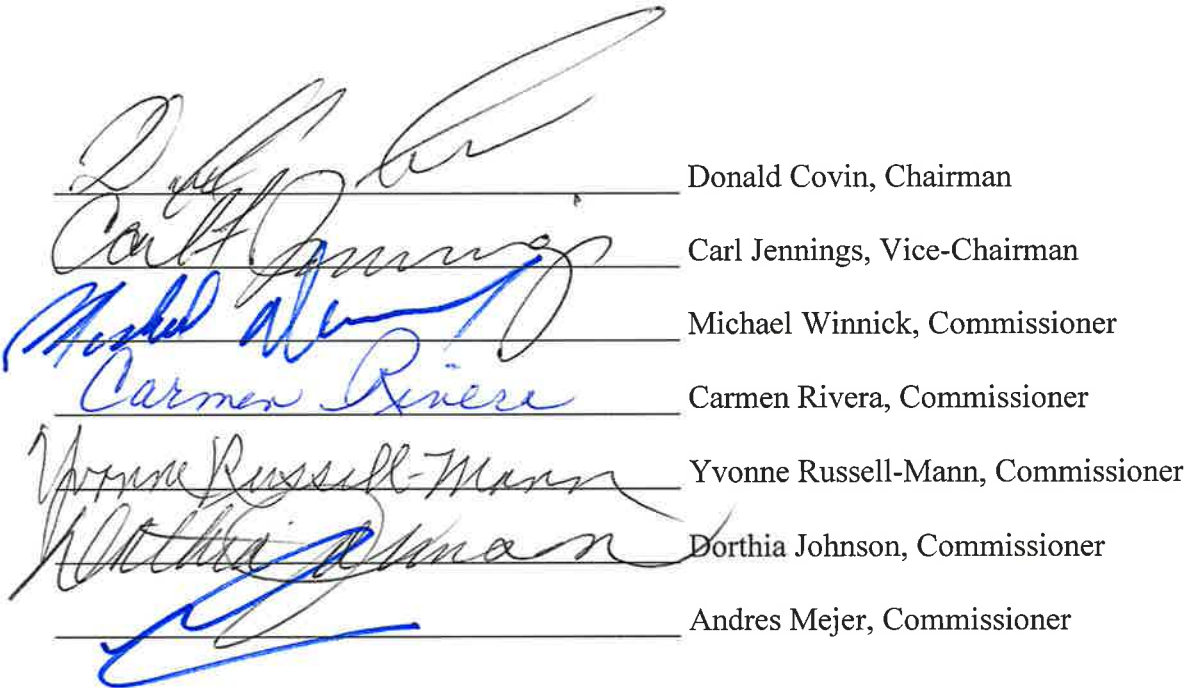 Donald Covin, Chairman
Carl F Jennings Carl Jennings, Vice-Chairman
Michael Winnick, Commissioner
Carmen Rivera Carmen Rivera, Commissioner
Yvonne Russell-Mann Yvonne Russell-Mann, Commissioner
Dorthia Johnson Dorthia Johnson, Commissioner
Andres Mejer, Commissioner